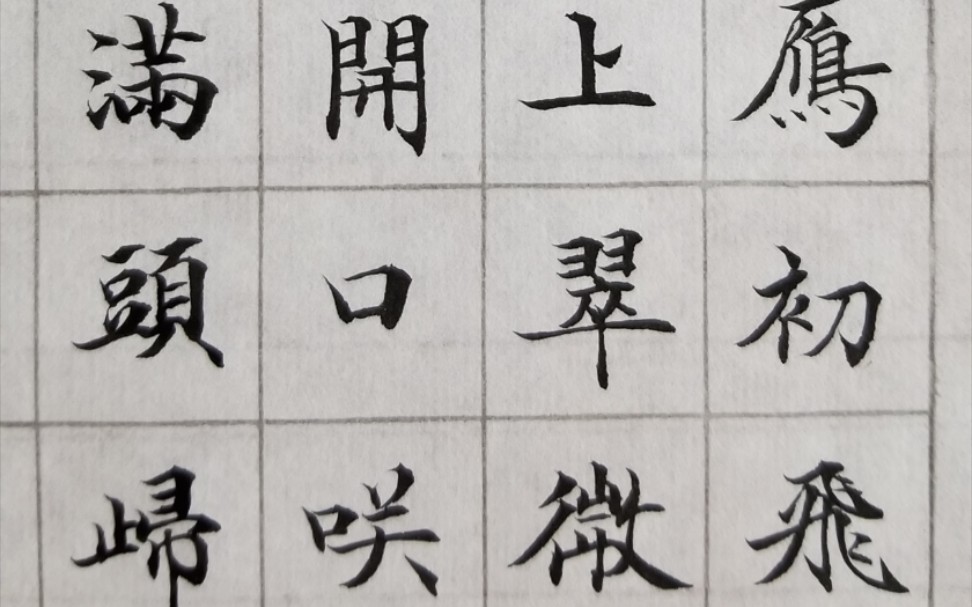 鴈初飛
上翠微
開口咲
滿頭歸